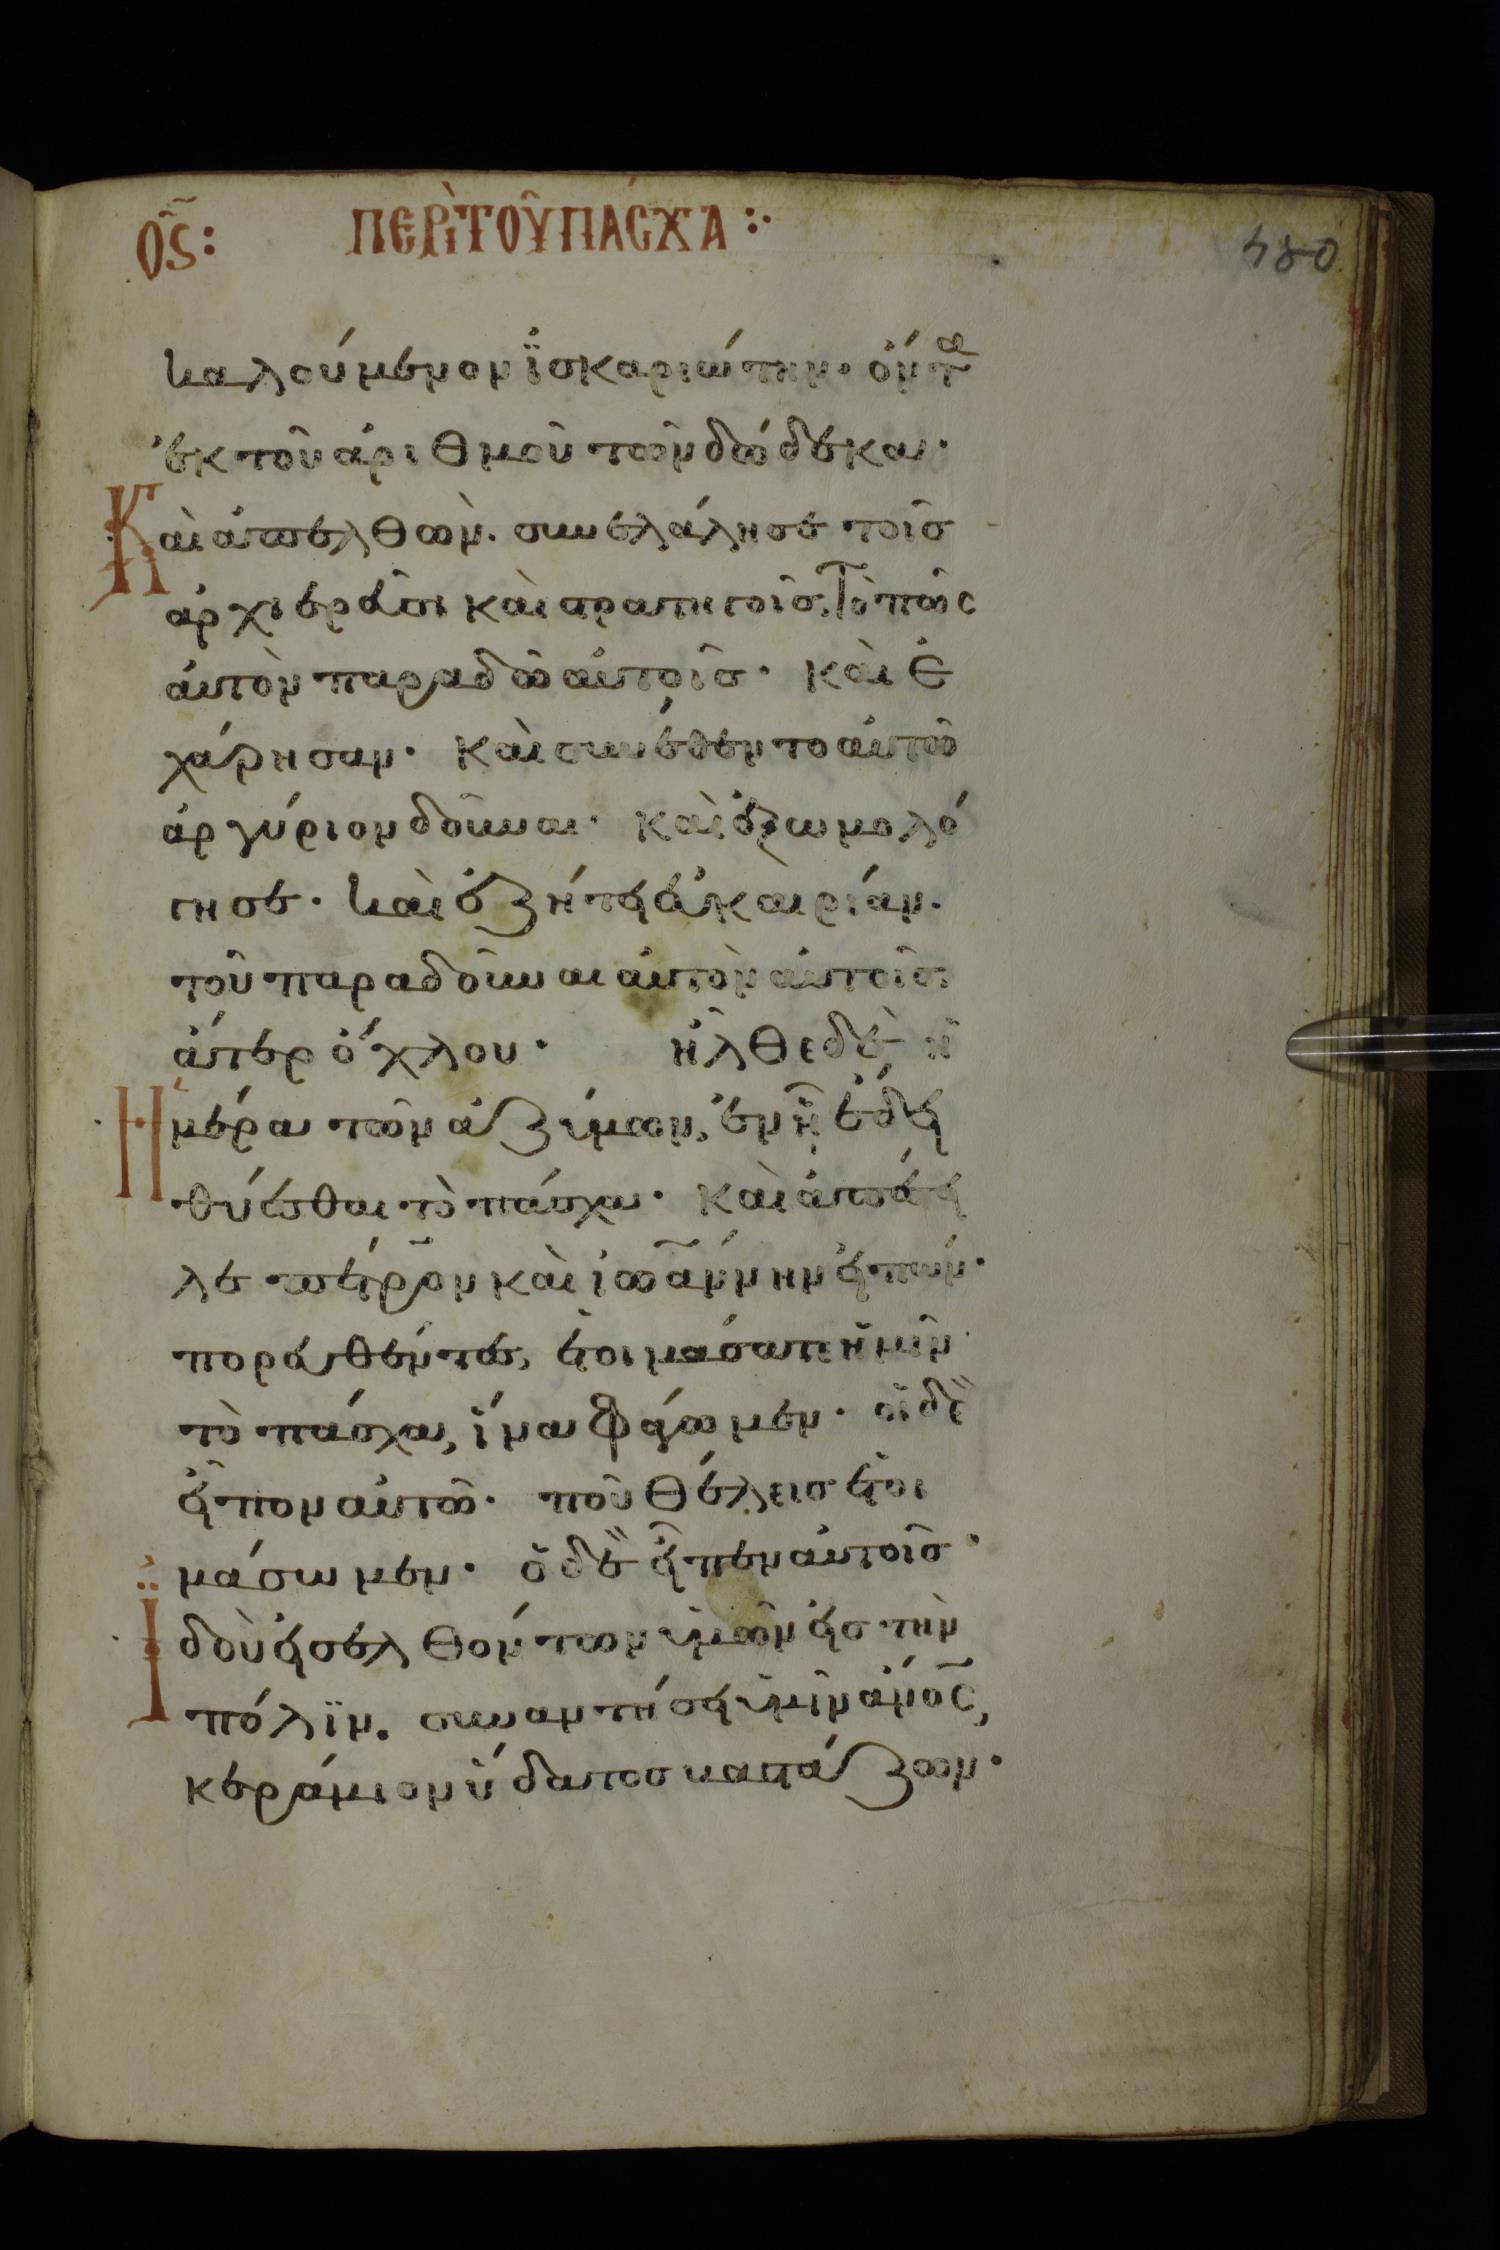 ος: ΠΕΡῚ ΤΟΥ͂ ΠΆΣΧΑ :·
480
καλούμενον ϊσκαριώτην· ὄντα
ἐκ τοῦ ἀριθμοῦ τῶν δώδεκα·
Καὶ ἀπελθὼν. συνελάλησε τοῖς
ἀρχιερεῦσι καὶ στρατηγοῖς, Τὸ πῶς
αὐτὸν παραδῶ αὐτοῖς· καὶ ἐ
χάρησαν· καὶ συνέθεντο αὐτῶ
ἀργύριον δοῦναι· καὶ ἐξωμολό
γησε· καὶ ἐζήτει εὐκαιρίαν.
τοῦ παραδοῦναι αὐτὸν αὐτοῖς
ἄτερ ὄχλου· ἦλθε δὲ ἡ
Ἡμέρα τῶν ἀζύμων, ἐν ᾗ ἔδει
θύεσθαι τὸ πάσχα· καὶ ἀπέστει
λε πέτρον καὶ ἰωάννην εἰπών·
πορευθέντες, ἑτοιμάσατε ἡμῖν
τὸ πάσχα, ἵνα φάγωμεν· οἱ δὲ
εἶπον αὐτῶ· ποῦ θέλεις ἑτοι
μάσωμεν· ὁ δὲ εἶπεν αὐτοῖς·
Ἰδοὺ εἰσελθόντων ὑμῶν εἰς τὴν
πόλϊν. συναντήσει ὑμῖν ἄνος,
κεράμιον ὕδατος βαστάζων·